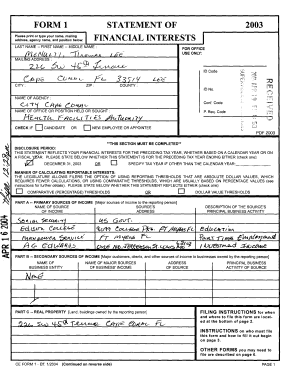 FORM 1 STATEMENT OF 2003
FINANCIAL INTERESTS
Please print or type your name, mailing
address, agency name, and position below
LAST NAME - FIRST NAME - MIDDLE NAME:
LEE
FOR OFFICE
USE ONLY:
MAILING ADDRESS:
226 SW 45th
CAPE CORAL FL 33914 LEE
CITY: ZIP: COUNTY:
NAME OF AGENCY:
CITY CAPE CORAL
NAME OF OFFICE OR POSITION HELD OR SOUGHT:
HEALTH FACILITIES AUTHORITY
CHECK IF CANDIDATE OR NEW EMPLOYEE OR APPOINTEE
ID Code
ID No.
Conf. Code
P. Req. Code
RECEIVED
PDF 2003
**THIS SECTION MUST BE COMPLETED**
DISCLOSURE PERIOD:
THIS STATEMENT REFLECTS YOUR FINANCIAL INTERESTS FOR THE PRECEDING TAX YEAR, WHETHER BASED ON A CALENDAR YEAR OR ON
A FISCAL YEAR. PLEASE STATE BELOW WHETHER THIS STATEMENT IS FOR THE PRECEDING TAX YEAR ENDING EITHER (check one):
DECEMBER 31, 2003 OR SPECIFY TAX YEAR IF OTHER THAN THE CALENDAR YEAR:
MANNER OF CALCULATING REPORTABLE INTERESTS:
THE LEGISLATURE ALLOWS FILERS THE OPTION OF USING REPORTING THRESHOLDS THAT ARE ABSOLUTE DOLLAR VALUES, WHICH
REQUIRES FEWER CALCULATIONS, OR USING COMPARATIVE THRESHOLDS, WHICH ARE USUALLY BASED ON PERCENTAGE VALUES (see
instructions for further details). PLEASE STATE BELOW WHETHER THIS STATEMENT REFLECTS EITHER (check one):
COMPARATIVE (PERCENTAGE) THRESHOLDS OR DOLLAR VALUE THRESHOLDS
PART A -- PRIMARY SOURCES OF INCOME [Major sources of income to the reporting person]
NAME OF SOURCE OF INCOME SOURCE'S ADDRESS DESCRIPTION OF THE SOURCE'S PRINCIPAL BUSINESS ACTIVITY
SOCIAL SECURITY US GOVT.
EDISON COLLEGE FT MYERS FL EDUCATION
SERVICE FT MYERS FL PART TIME EMPLOYMENT
AG EDWARDS ONE NO. JEFFERSON ST LOUIS MO INVESTMENT INCOME
PART B -- SECONDARY SOURCES OF INCOME [Major customers, clients, and other sources of income to businesses owned by the reporting person]
NAME OF BUSINESS ENTITY NAME OF MAJOR SOURCES OF BUSINESS' INCOME ADDRESS OF SOURCE PRINCIPAL BUSINESS ACTIVITY OF SOURCE
NONE
PART C -- REAL PROPERTY [Land, buildings owned by the reporting person]
226 SW 45th CAPE CORAL FL
FILING INSTRUCTIONS for when
and where to file this form are located
at the bottom of page 2.
INSTRUCTIONS on who must file
this form and how to fill it out begin
on page 3.
OTHER FORMS you may need to
file are described on page 6.
CE FORM 1 - Eff. 1/2004 (Continued on reverse side) PAGE 1
APR 16 2004